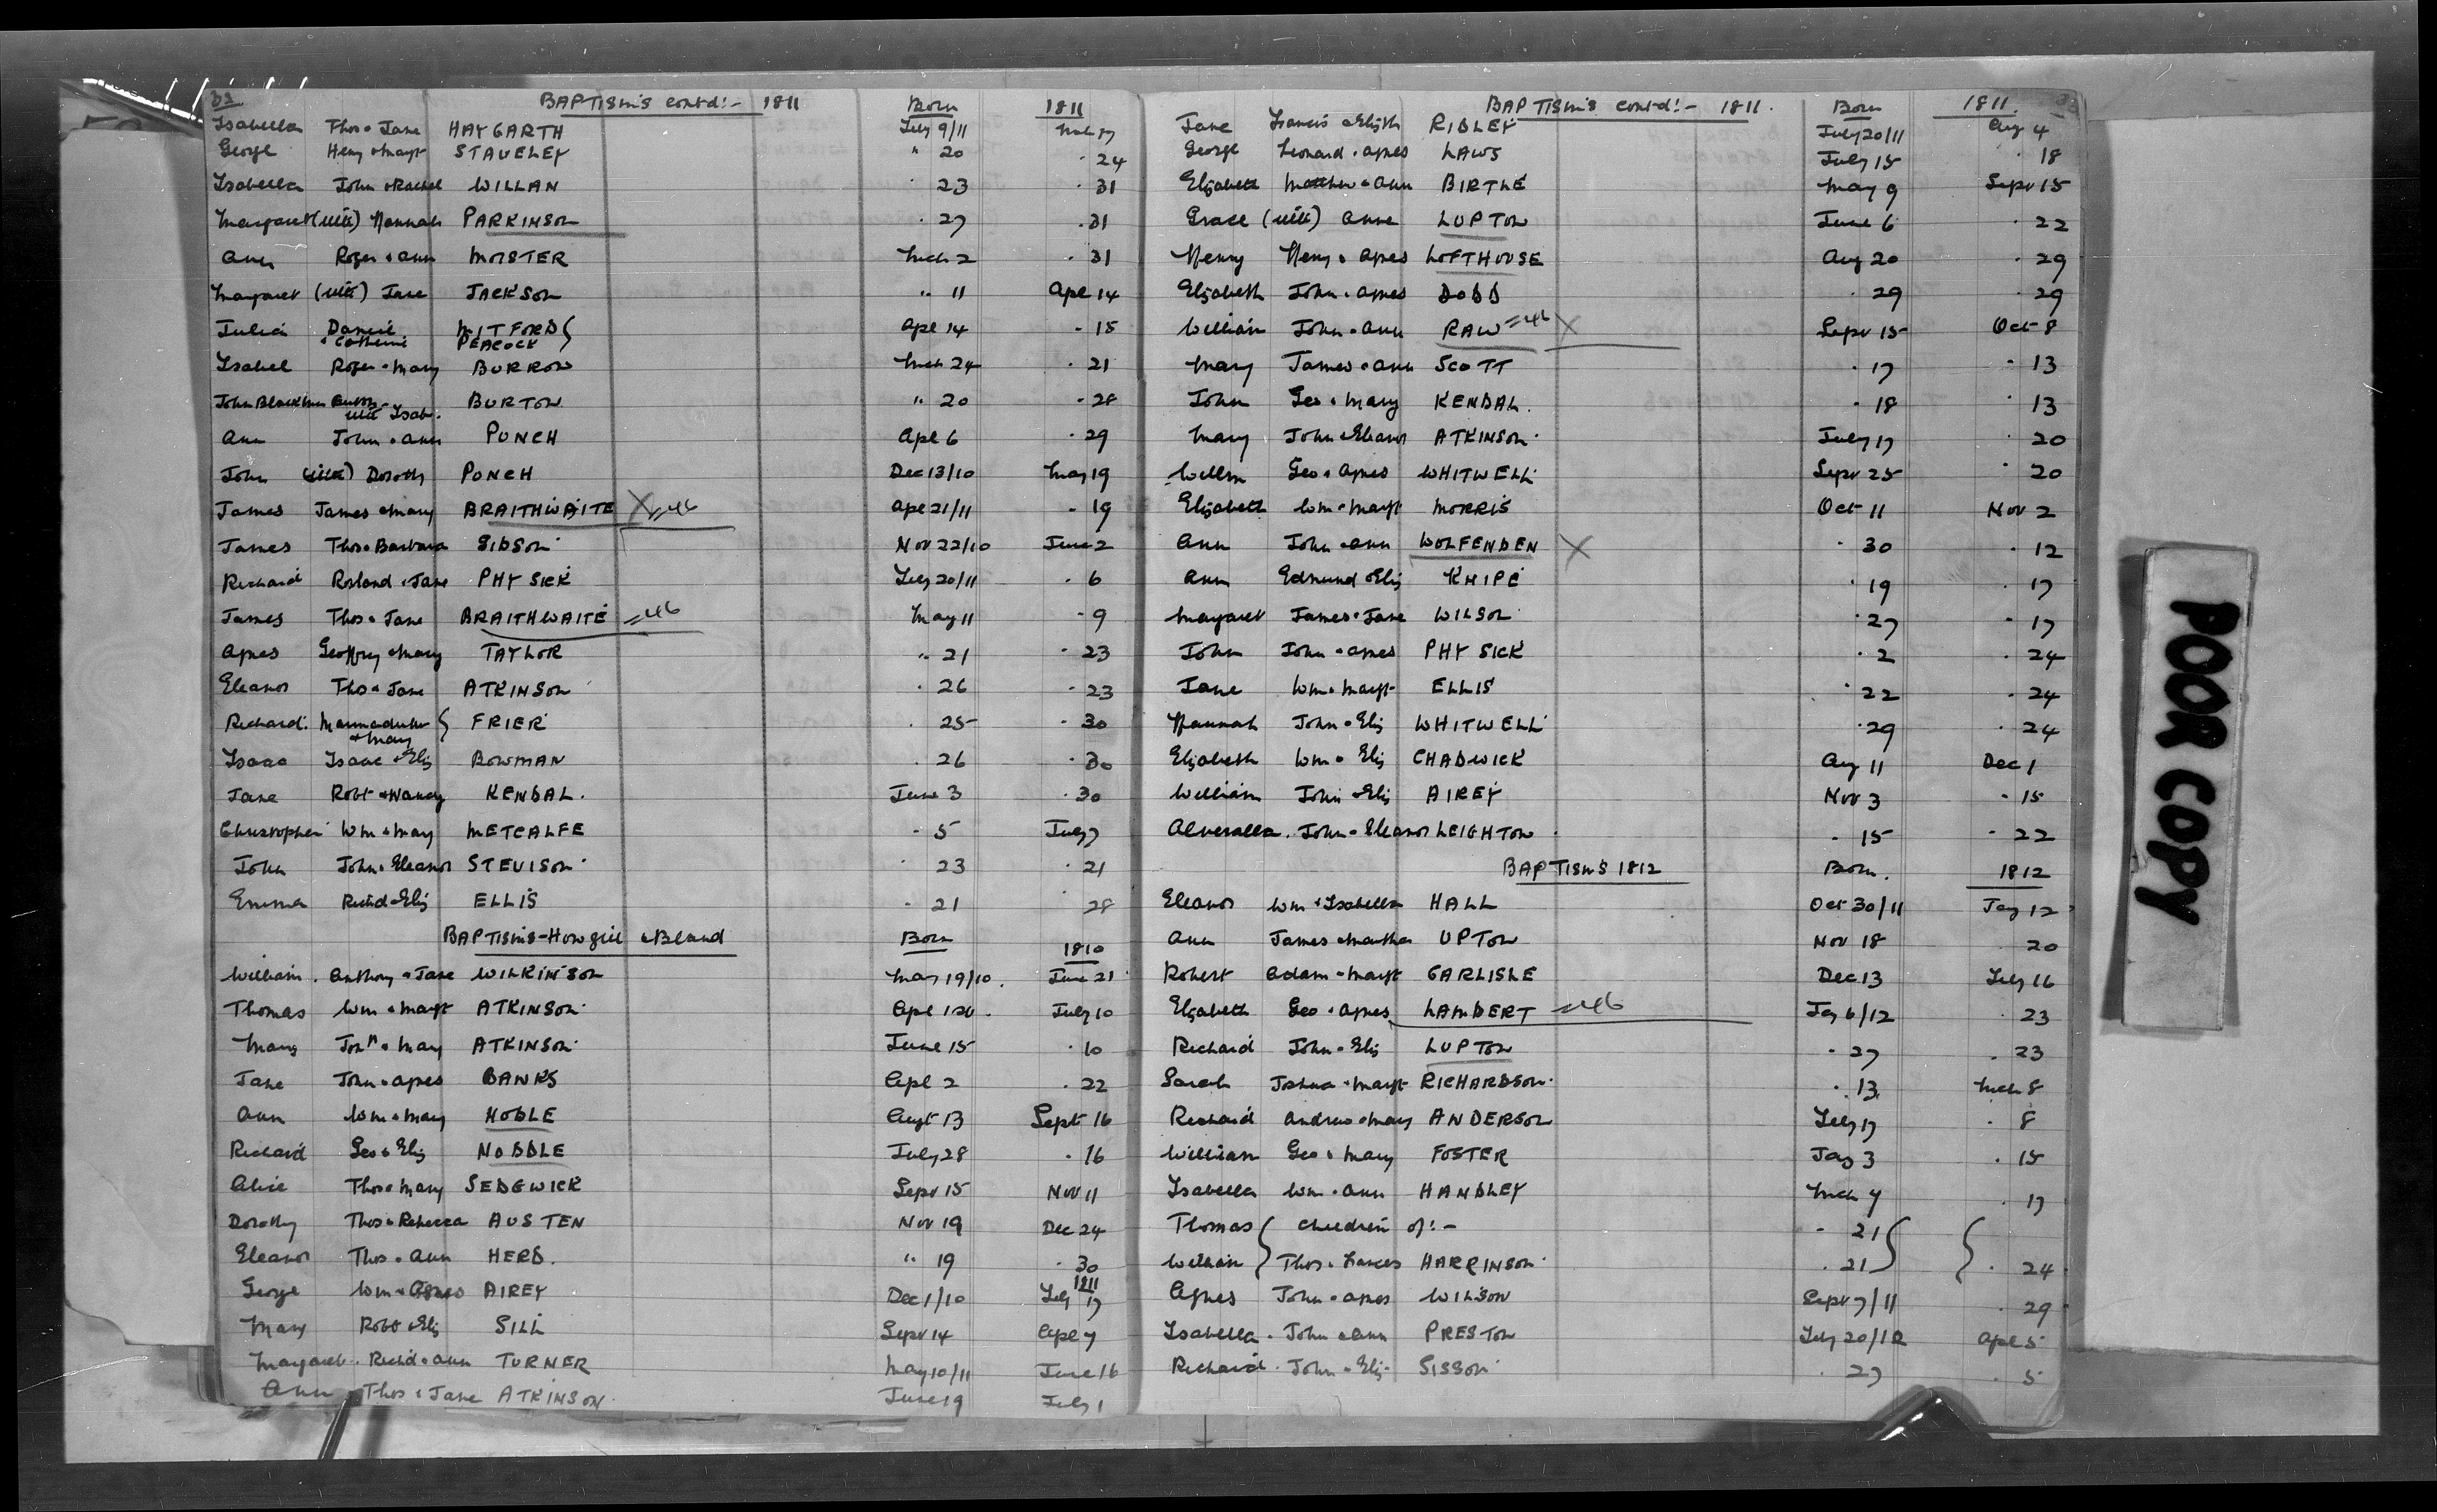 32 BAPTISMS contd:- 1811 Born 1811
Isabella Thos & Jane HAYGARTH Feby 9/11 Mch 17
George Heny & Margt STAVELEY " 20 " 24
Isabella John & Rachel WILLAN " 23 " 31
Margaret (illt) Hannah PARKINSON " 27 " 31
Ann Roger & Ann MOISTER Mch 2 " 31
Margaret (illt) Jane JACKSON " 11 Apl 14
Julia Daniel MITFORD }
& Catherine PEACOCK Apl 14 " 15
Isabel Roger & Mary BURROW Mch 24 " 21
John Blackburn
illt Isab. BURTON " 20 " 28
Ann John & Ann PUNCH Apl 6 " 29
John (illt) Dorothy PUNCH Dec 13/10 May 19
James James & Mary BRAITHWAITE X =46 Apl 21/11 " 19
James Thos & Barbara GIBSON Nov 22/10 June 2
Richard Rowland & Jane PHYSICK Feby 20/11 " 6
James Thos & Jane BRAITHWAITE =46 May 11 " 9
Agnes Geoffrey & Mary TAYLOR " 21 " 23
Eleanor Thos & Jane ATKINSON " 26 " 23
Richard Marmaduke
& Mary } FRIER " 25 " 30
Isaac Isaac & Eliz BOWMAN " 26 " 30
Jane Robt & Nancy KENDAL. June 3 " 30
Christopher Wm & Mary METCALFE " 5 July 7
John John & Eleanor STEVISON " 23 " 21
Emma Richd & Eliz ELLIS " 21 28
BAPTISMS - Howgill & Bland Born 1810
William Anthony & Jane WILKINSON May 19/10 June 21
Thomas Wm & Margt ATKINSON Apl July 10
Mary Jonn & Mary ATKINSON June 15 " 10
Jane John & Agnes BANKS Apl 2 " 22
Ann Wm & Mary NOBLE Augt 13 Sept 16
Richard Geo & Eliz NOBBLE July 28 " 16
Alice Thos & Mary SEDGWICK Sepr 15 Nov 11
Dorothy Thos & Rebecca AUSTEN Nov 19 Dec 24
Eleanor Thos & Ann HERD. " 19 " 30
1811
George Wm & Agnes AIREY Dec 1/10 Feby 17
Mary Robt & Eliz SILL Sepr 14 Apl 7
Margaret Richd & Ann TURNER May 10/11 June 16
Ann Thos & Jane ATKINSON June 19 July 1
BAPTISMS contd:- 1811. Born 1811.
Jane Francis & Elizth RIDLEY July 20/11 Aug 4
George Leonard & Agnes LAWS July 15 " 18
Elizabeth Matthew & Ann BIRTLE May 9 Sepr 15
Grace (illt) Anne LUPTON June 6 " 22
Henry Henry & Agnes LOFTHOUSE Aug 20 " 29
Elizabeth John & Agnes DODD " 29 " 29
William John & Ann RAW =46 X Sepr 15 Oct 8
Mary James & Ann SCOTT " 17 " 13
John Geo & Mary KENDAL. " 18 " 13
Mary John & Eleanor ATKINSON July 17 " 20
Willm Geo & Agnes WHITWELL Sepr 25 " 20
Elizabeth Wm & Margt MORRIS Oct 11 Nov 2
Ann John & Ann WOLFENDEN X " 30 " 12
Ann Edmund & Eliz KNIPE " 19 " 17
Margaret James & Jane WILSON " 27 " 17
John John & Agnes PHYSICK " 2 " 24
Jane Wm & Margt ELLIS " 22 " 24
Hannah John & Eliz WHITWELL " 29 " 24
Elizabeth Wm & Eliz CHADWICK Aug 11 Dec 1
William John & Eliz AIREY Nov 3 " 15
Alveralla John & Eleanor LEIGHTON " 15 " 22
BAPTISMS 1812 Born. 1812
Eleanor Wm & Isabella HALL Oct 30/11 Jay 12
Ann James & Martha UPTON Nov 18 20
Robert Adam & Margt CARLISLE Dec 13 Feby 16
Elizabeth Geo & Agnes LAMBERT =46 Jay 6/12 " 23
Richard John & Eliz LUPTON " 27 " 23
Sarah Joshua & Margt RICHARDSON " 13 Mch 8
Richard Andrew & Mary ANDERSON Feby 17 " 8
William Geo & Mary FOSTER Jay 3 " 15
Isabella Wm & Ann HANDLEY Mch 4 " 17
Thomas } Children of:- " 21 }
William } Thos & Frances HARRINSON " 21 } } " 24
Agnes John & Agnes WILSON Sepr 7/11 " 29
Isabella John & Ann PRESTON Feby 20/12 Apl 5
Richard John & Eliz SISSON " 27 " 5
POOR COPY